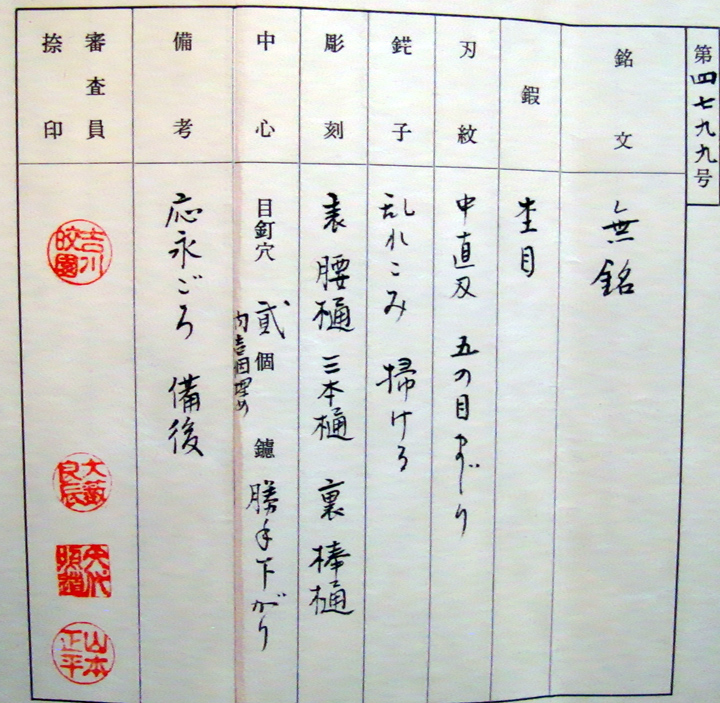 第四七九九号
銘文
無銘
鍜
杢目
刃紋
中直刃 五の目まじり
鋩子
乱れこみ 掃ける
彫刻
表 腰樋 三本樋 裏 棒樋
中心
目釘穴 貳個 鑢 勝手下がり
内壱個埋め
備考
応永ごろ 備後
審査員
捺印
吉川
皎園
山本
正平